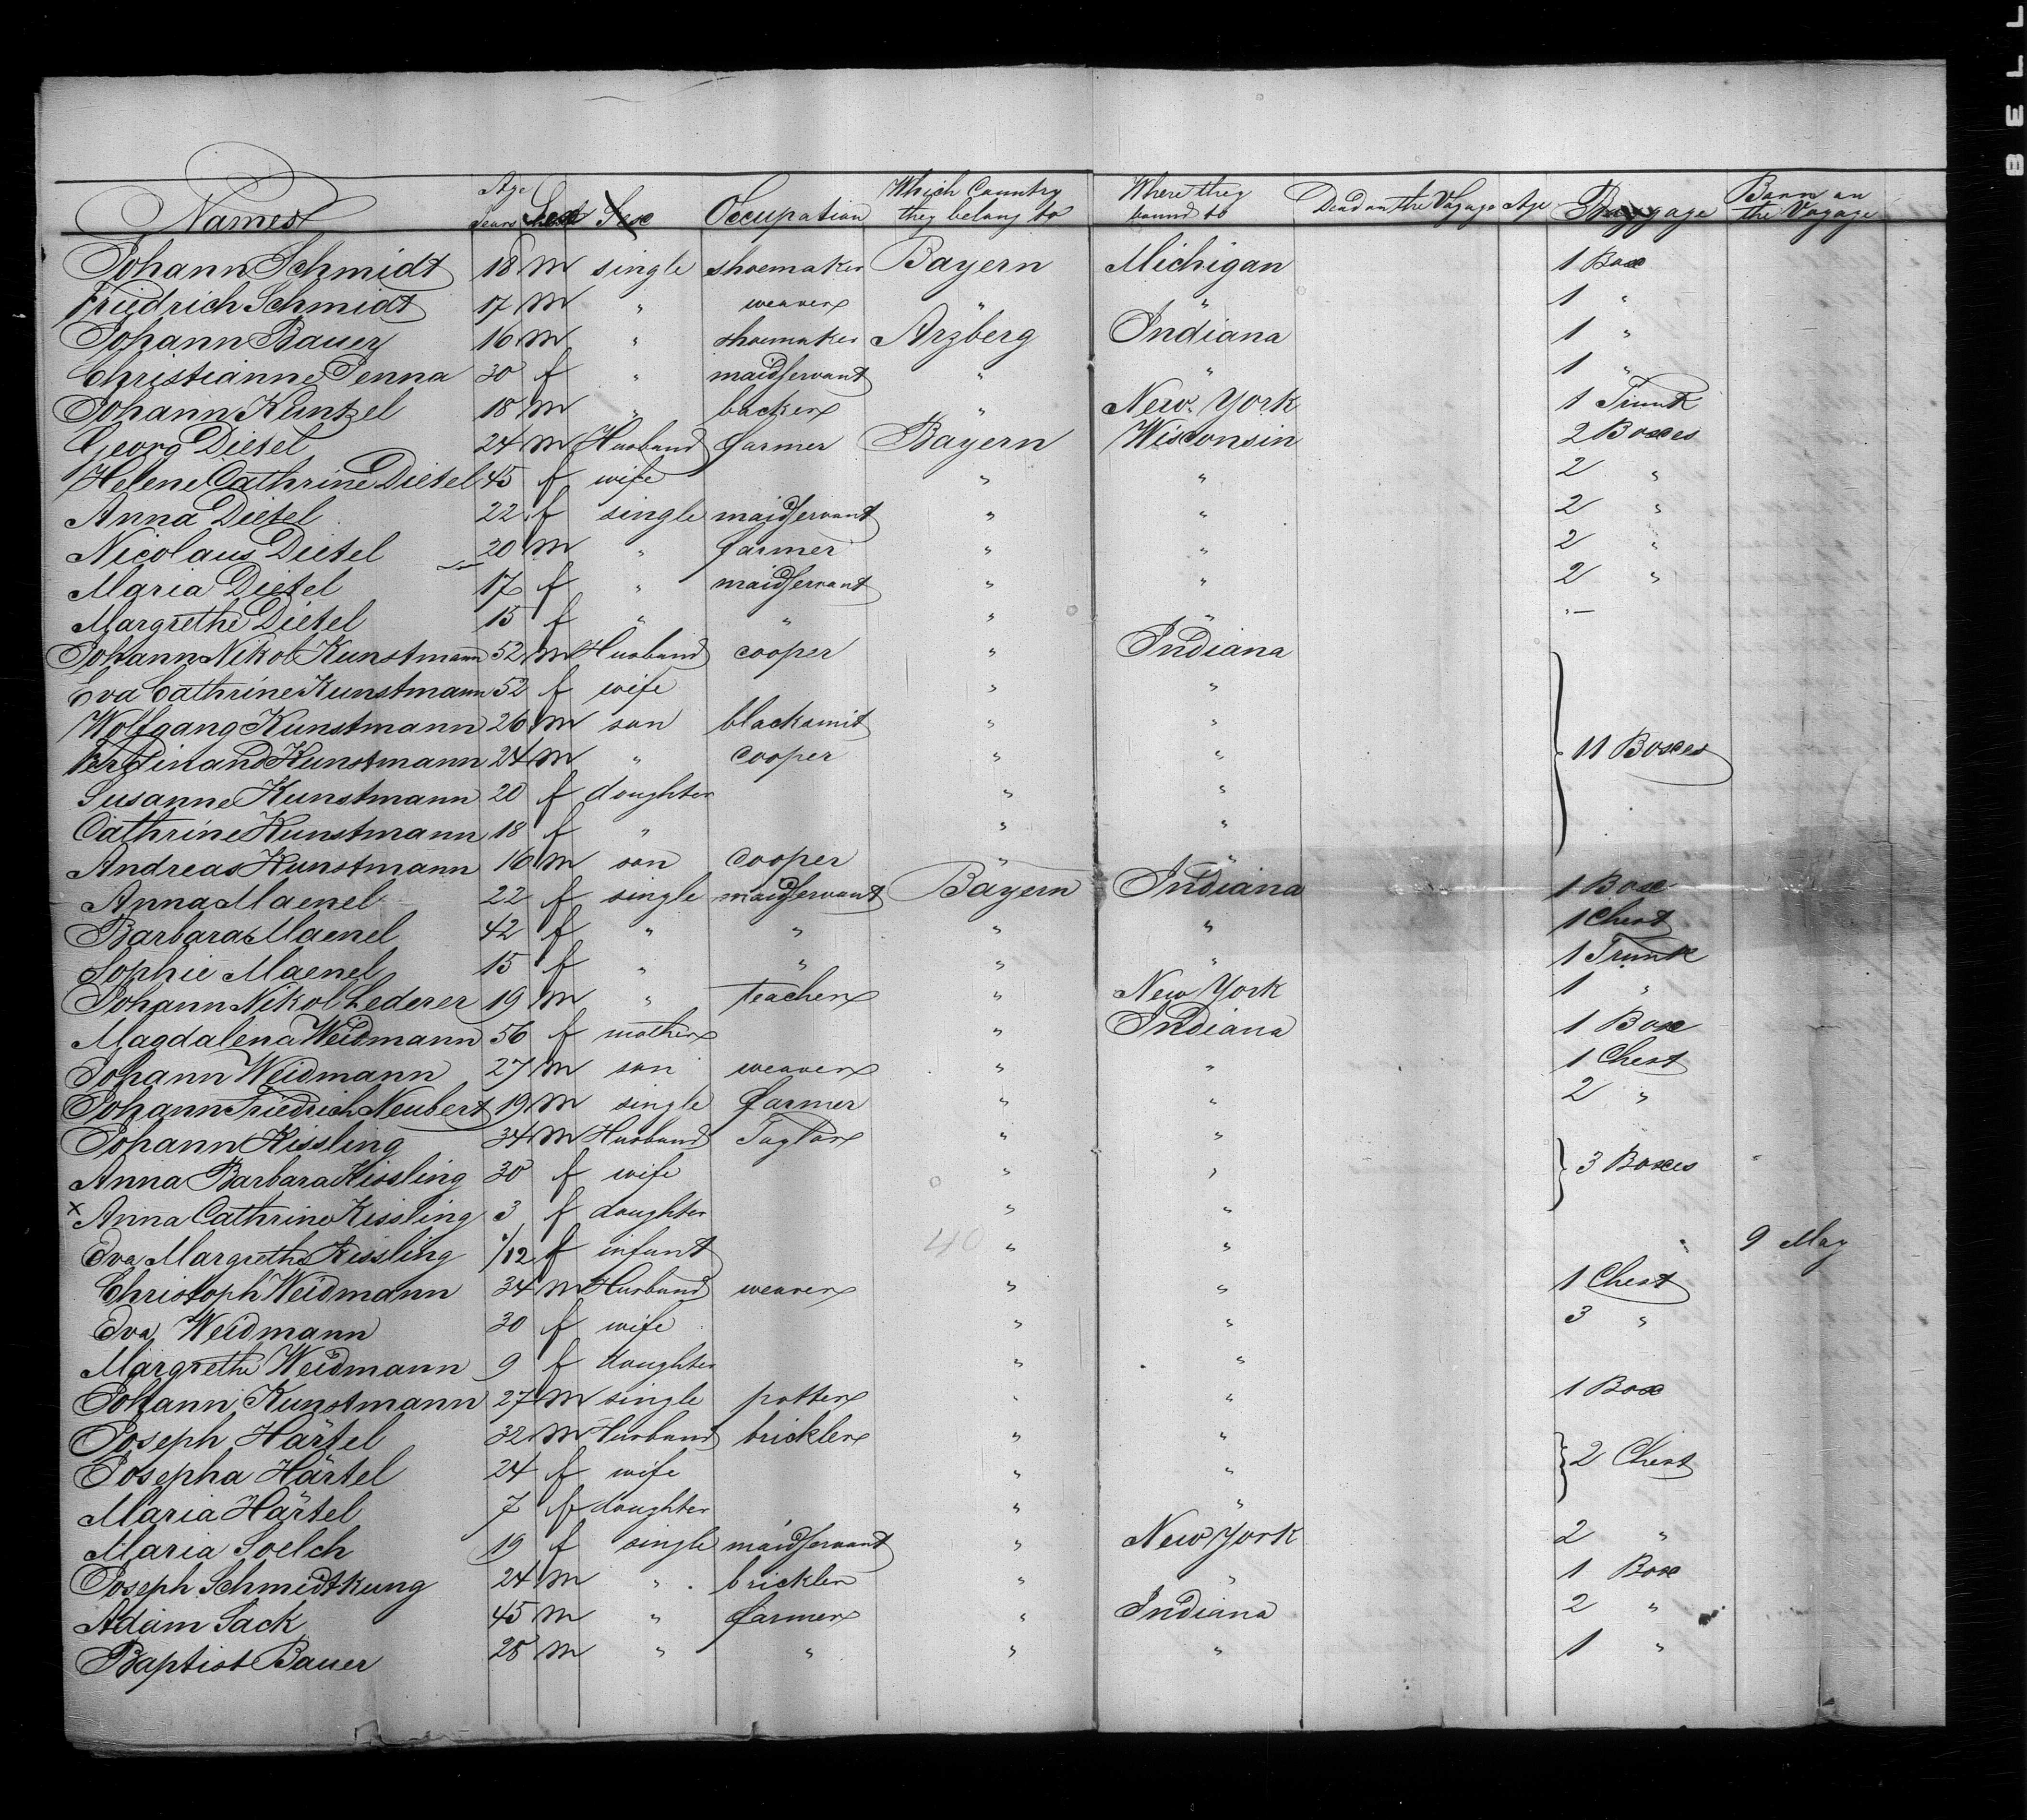 Names Age Years Sex Occupation Which Country they belong to Where they bound to Dead on the Vojage Age Baggage Born on the Vojage
Johann Schmidt 18 m single shoemaker Bayern Michigan 1 Box
Friedrich Schmidt 17 m " weaver " " 1 "
Johann Bauer 16 m " shoemaker Arzberg Indiana 1 "
Christianne Penna 30 f " maidservant " " 1 "
Johann Küntzel 18 m " backer " New York 1 Trunk
Georg Dietel 24 m Husband farmer Bayern Wisconsin 2 Boxes
Helene Cathrine Dietel 45 f wife " " 2 "
Anna Dietel 22 f single maidservant " " 2 "
Nicolaus Dietel 20 m " farmer " " 2 "
Maria Dietel 17 f " maidservant " " 2 "
Margrethe Dietel 15 f " " " " "—
Johann Nikol Kunstmann 52 m Husband cooper " Indiana
Eva Cathrine Kunstmann 52 f wife " "
Wolfgang Kunstmann 26 m son blacksmit " "
Ferdinand Kunstmann 24 m " cooper " " 11 Boxes
Susanne Kunstmann 20 f doughter " "
Cathrine Kunstmann 18 f " " "
Andreas Kunstmann 16 m son cooper " "
Anna Maenel 22 f single maidservant Bayern Indiana 1 Box
Barbara Maenel 42 f " " " " 1 Chest
Sophie Maenel 15 f " " " " 1 Trunk
Johann Nikol Lederer 19 m " teacher " New York 1 "
Magdalena Weidmann 56 f mother " Indiana 1 Box
Johann Weidmann 27 m son weaver " " 1 Chest
Johann Friedrich Neubert 19 m single farmer " " 2 "
Johann Kissling 34 m Husband Taylor " "
Anna Barbara Kissling 30 f wife " " 3 Boxes
x Anna Cathrine Kissling 3 f doughter " "
Eva Margrethe Kissling /12 f infant 40 " " " 9 May
Christoph Weidmann 34 m Husband weaver " " 1 Chest
Eva Weidmann 30 f wife " " 3 "
Margrethe Weidmann 9 f doughter " "
Johann Kunstmann 27 m single potter " " 1 Box
Joseph Härtel 32 m Husband brickler " "
Josepha Härtel 24 f wife " " 2 Chest
Maria Härtel 7 f doughter " "
Maria Soelch 19 f single maidservant " New York 2 "
Joseph Schmidtkung 24 m " brickler " " 1 Box
Adam Sack 45 m " farmer " Indiana 2 "
Baptist Bauer 28 m " " " " 1 "
BELL